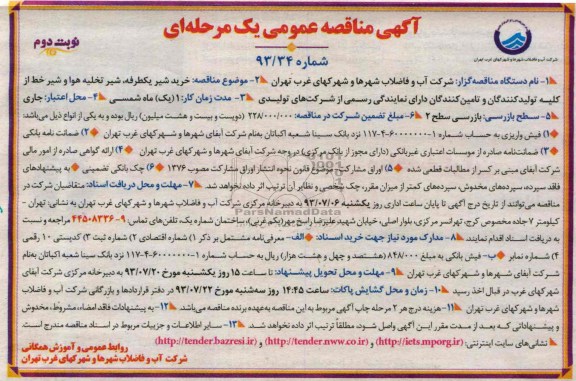 آگهی مناقصه عمومی یک مرحله‌ای
نوبت دوم
شماره ۹۳/۳۴
شرکت آب و فاضلاب شهرها و شهرکهای غرب تهران
۱- نام دستگاه مناقصه‌گزار: شرکت آب و فاضلاب شهرها و شهرکهای غرب تهران ۲- موضوع مناقصه: خرید شیر یکطرفه، شیر تخلیه هوا و شیر خط از
کلیه تولیدکنندگان و تامین‌کنندگان دارای نمایندگی رسمی از شرکت‌های تولیدی ۳- مدت زمان کار: ۱(یک) ماه شمسی ۴- محل اعتبار: جاری
۵- سطح بازرسی: بازرسی سطح ۲ ۶- مبلغ تضمین شرکت در مناقصه: ۲۲۸/۰۰۰/۰۰۰ (دویست و بیست و هشت میلیون) ریال بوده و به یکی از انواع ذیل می‌باشد:
۱) فیش واریزی به حساب شماره ۱-۴۰۰۰۰۰۰۰-۴-۱۱۷ نزد بانک سینا شعبه اکباتان به‌نام شرکت آبفای شهرها و شهرکهای غرب تهران ۲) ضمانت نامه بانکی
۳) ضمانتنامه صادره از موسسات اعتباری غیربانکی (دارای مجوز از بانک مرکزی) در وجه شرکت آبفای شهرها و شهرکهای غرب تهران ۴) ارائه گواهی صادره از امور مالی
شرکت آبفای مبنی بر کسر از مطالبات قطعی شده ۵) اوراق مشارکت موضوع قانون نحوه انتشار اوراق مشارکت مصوب ۱۳۷۶ ۶) چک بانکی تضمینی به پیشنهادهای
فاقد سپرده، سپرده‌های مخدوش، سپرده‌های کمتر از میزان مقرر، چک شخصی و نظایر آن ترتیب اثر داده نخواهد شد. ۷- مهلت و محل دریافت اسناد: متقاضیان شرکت در
مناقصه می‌توانند از تاریخ درج آگهی تا پایان ساعت اداری روز یکشنبه ۹۳/۰۷/۰۶ به دبیرخانه مرکزی شرکت آب و فاضلاب شهرها و شهرکهای غرب تهران به نشانی: تهران،
کیلومتر ۷ جاده مخصوص کرج، تهرانسر مرکزی، بلوار اصلی، خیابان شهید علیرضا یاسخ مهر(یکم غربی)، ساختمان شماره یک، تلفن‌های تماس: ۹-۴۴۵۰۸۳۳۶ مراجعه و نسبت
به دریافت اسناد اقدام نمایند. ۸- مدارک مورد نیاز جهت خرید اسناد: الف- معرفی‌نامه مشتمل بر ذکر ۱) شماره اقتصادی ۲) شماره ثبت ۳) کدپستی ۱۰ رقمی
۴) شماره نمابر ب- فیش بانکی به مبلغ ۸۴۸/۰۰۰ (هشتصد و چهل و هشت هزار) ریال به حساب شماره ۱-۶۰۰۰۰۰۰-۴-۱۱۷ نزد بانک سینا شعبه اکباتان به‌نام
شرکت آبفای شهرها و شهرکهای غرب تهران ۹- مهلت و محل تحویل پیشنهاد: تا ساعت ۱۵ روز یکشنبه مورخ ۹۳/۰۷/۲۰ به دبیرخانه مرکزی شرکت آبفای شهرها و
شهرکهای غرب در قبال اخذ رسید ۱۰- زمان و محل گشایش پاکات: ساعت ۱۴:۴۵ روز سه‌شنبه مورخ ۹۳/۰۷/۲۲ در دفتر قراردادها و بازرگانی شرکت آب و فاضلاب
شهرها و شهرکهای غرب تهران ۱۱- هزینه درج هر ۲ مرحله چاپ آگهی مربوط به این مناقصه به‌عهده برنده مناقصه می‌باشد. ۱۲- به پیشنهادات فاقد امضاء، مشروط، مخدوش
و پیشنهاداتی که بعد از مدت مقرر این آگهی واصل شود، مطلقاً ترتیب اثر داده نخواهد شد. ۱۳- سایر اطلاعات و جزییات مربوط در اسناد مناقصه مندرج است.
نشانی‌های سایت اینترنتی: (http://iets.mporg.ir) و (http://tender.nww.co.ir) و (http://tender.bazresi.ir)
روابط عمومی و آموزش همگانی
شرکت آب و فاضلاب شهرها و شهرکهای غرب تهران
ParsNamadData